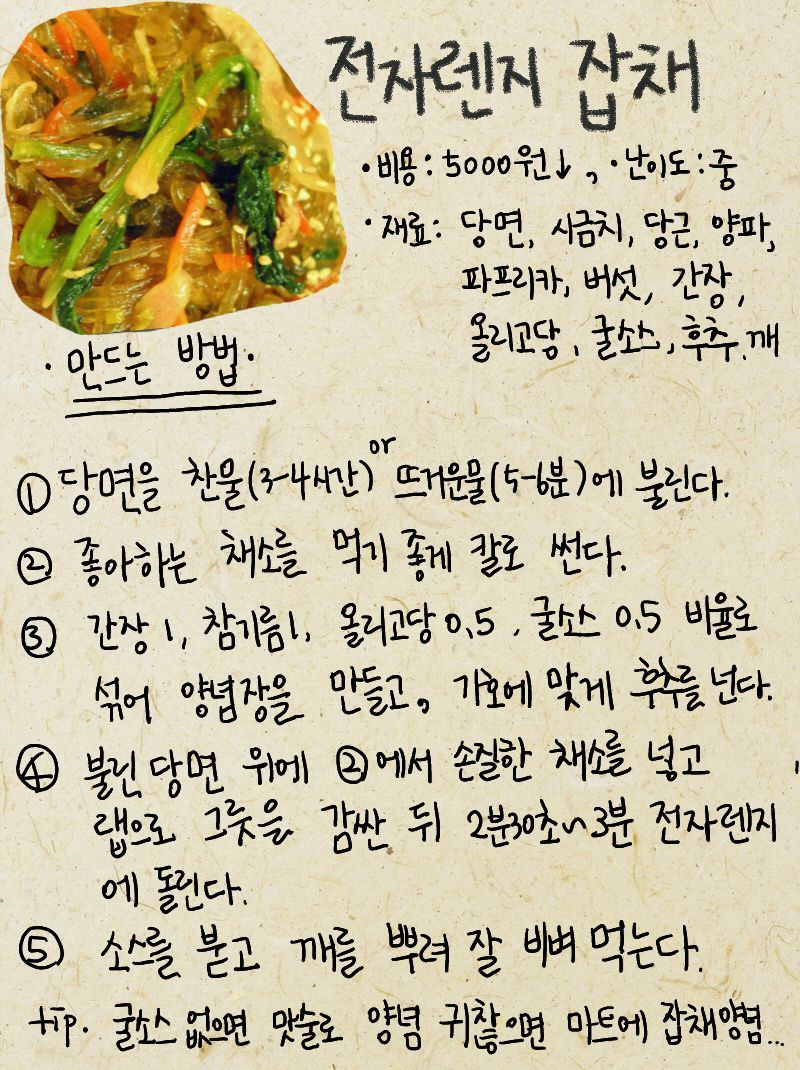 전자렌지 잡채
· 비용 : 5000원↓, · 난이도 : 중
· 재료 : 당면, 시금치, 당근, 양파,
파프리카, 버섯, 간장,
올리고당, 굴소스, 후추, 깨
· 만드는 방법 ·
① 당면을 찬물(3-4시간) or 뜨거운물(5-6분)에 불린다.
② 좋아하는 채소를 먹기 좋게 칼로 썬다.
③ 간장 1, 참기름 1, 올리고당 0.5, 굴소스 0.5 비율로
섞어 양념장을 만들고, 기호에 맞게 후추를 넌다.
④ 불린 당면 위에 ②에서 손질한 채소를 넣고
랩으로 그릇을 감싼 뒤 2분30초~3분 전자렌지
에 돌린다.
⑤ 소스를 붇고 깨를 뿌려 잘 비벼 먹는다.
tip. 굴소스 없으면 맛술로 양념 귀찮으면 마트에 잡채양념...